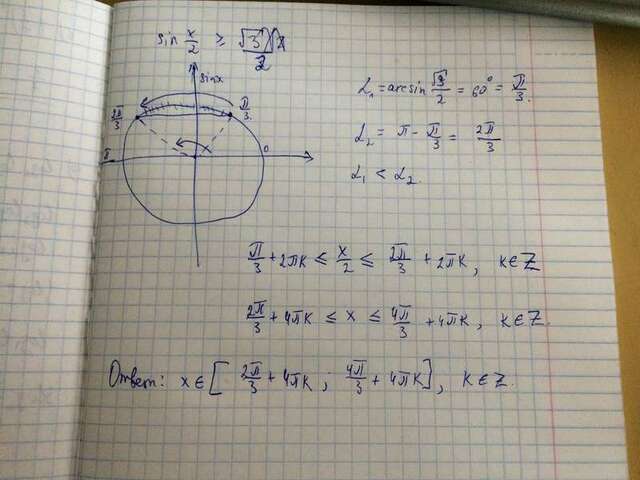 sin x/2 ≥ √3/2
sinx
2π/3
π/3
π
0
x
α₁ = arcsin √3/2 = 60° = π/3.
α₂ = π - π/3 = 2π/3
α₁ < α₂
π/3 + 2πk ≤ x/2 ≤ 2π/3 + 2πk, k∈Z
2π/3 + 4πk ≤ x ≤ 4π/3 + 4πk, k∈Z
Ответ: x∈[2π/3 + 4πk; 4π/3 + 4πk], k∈Z.